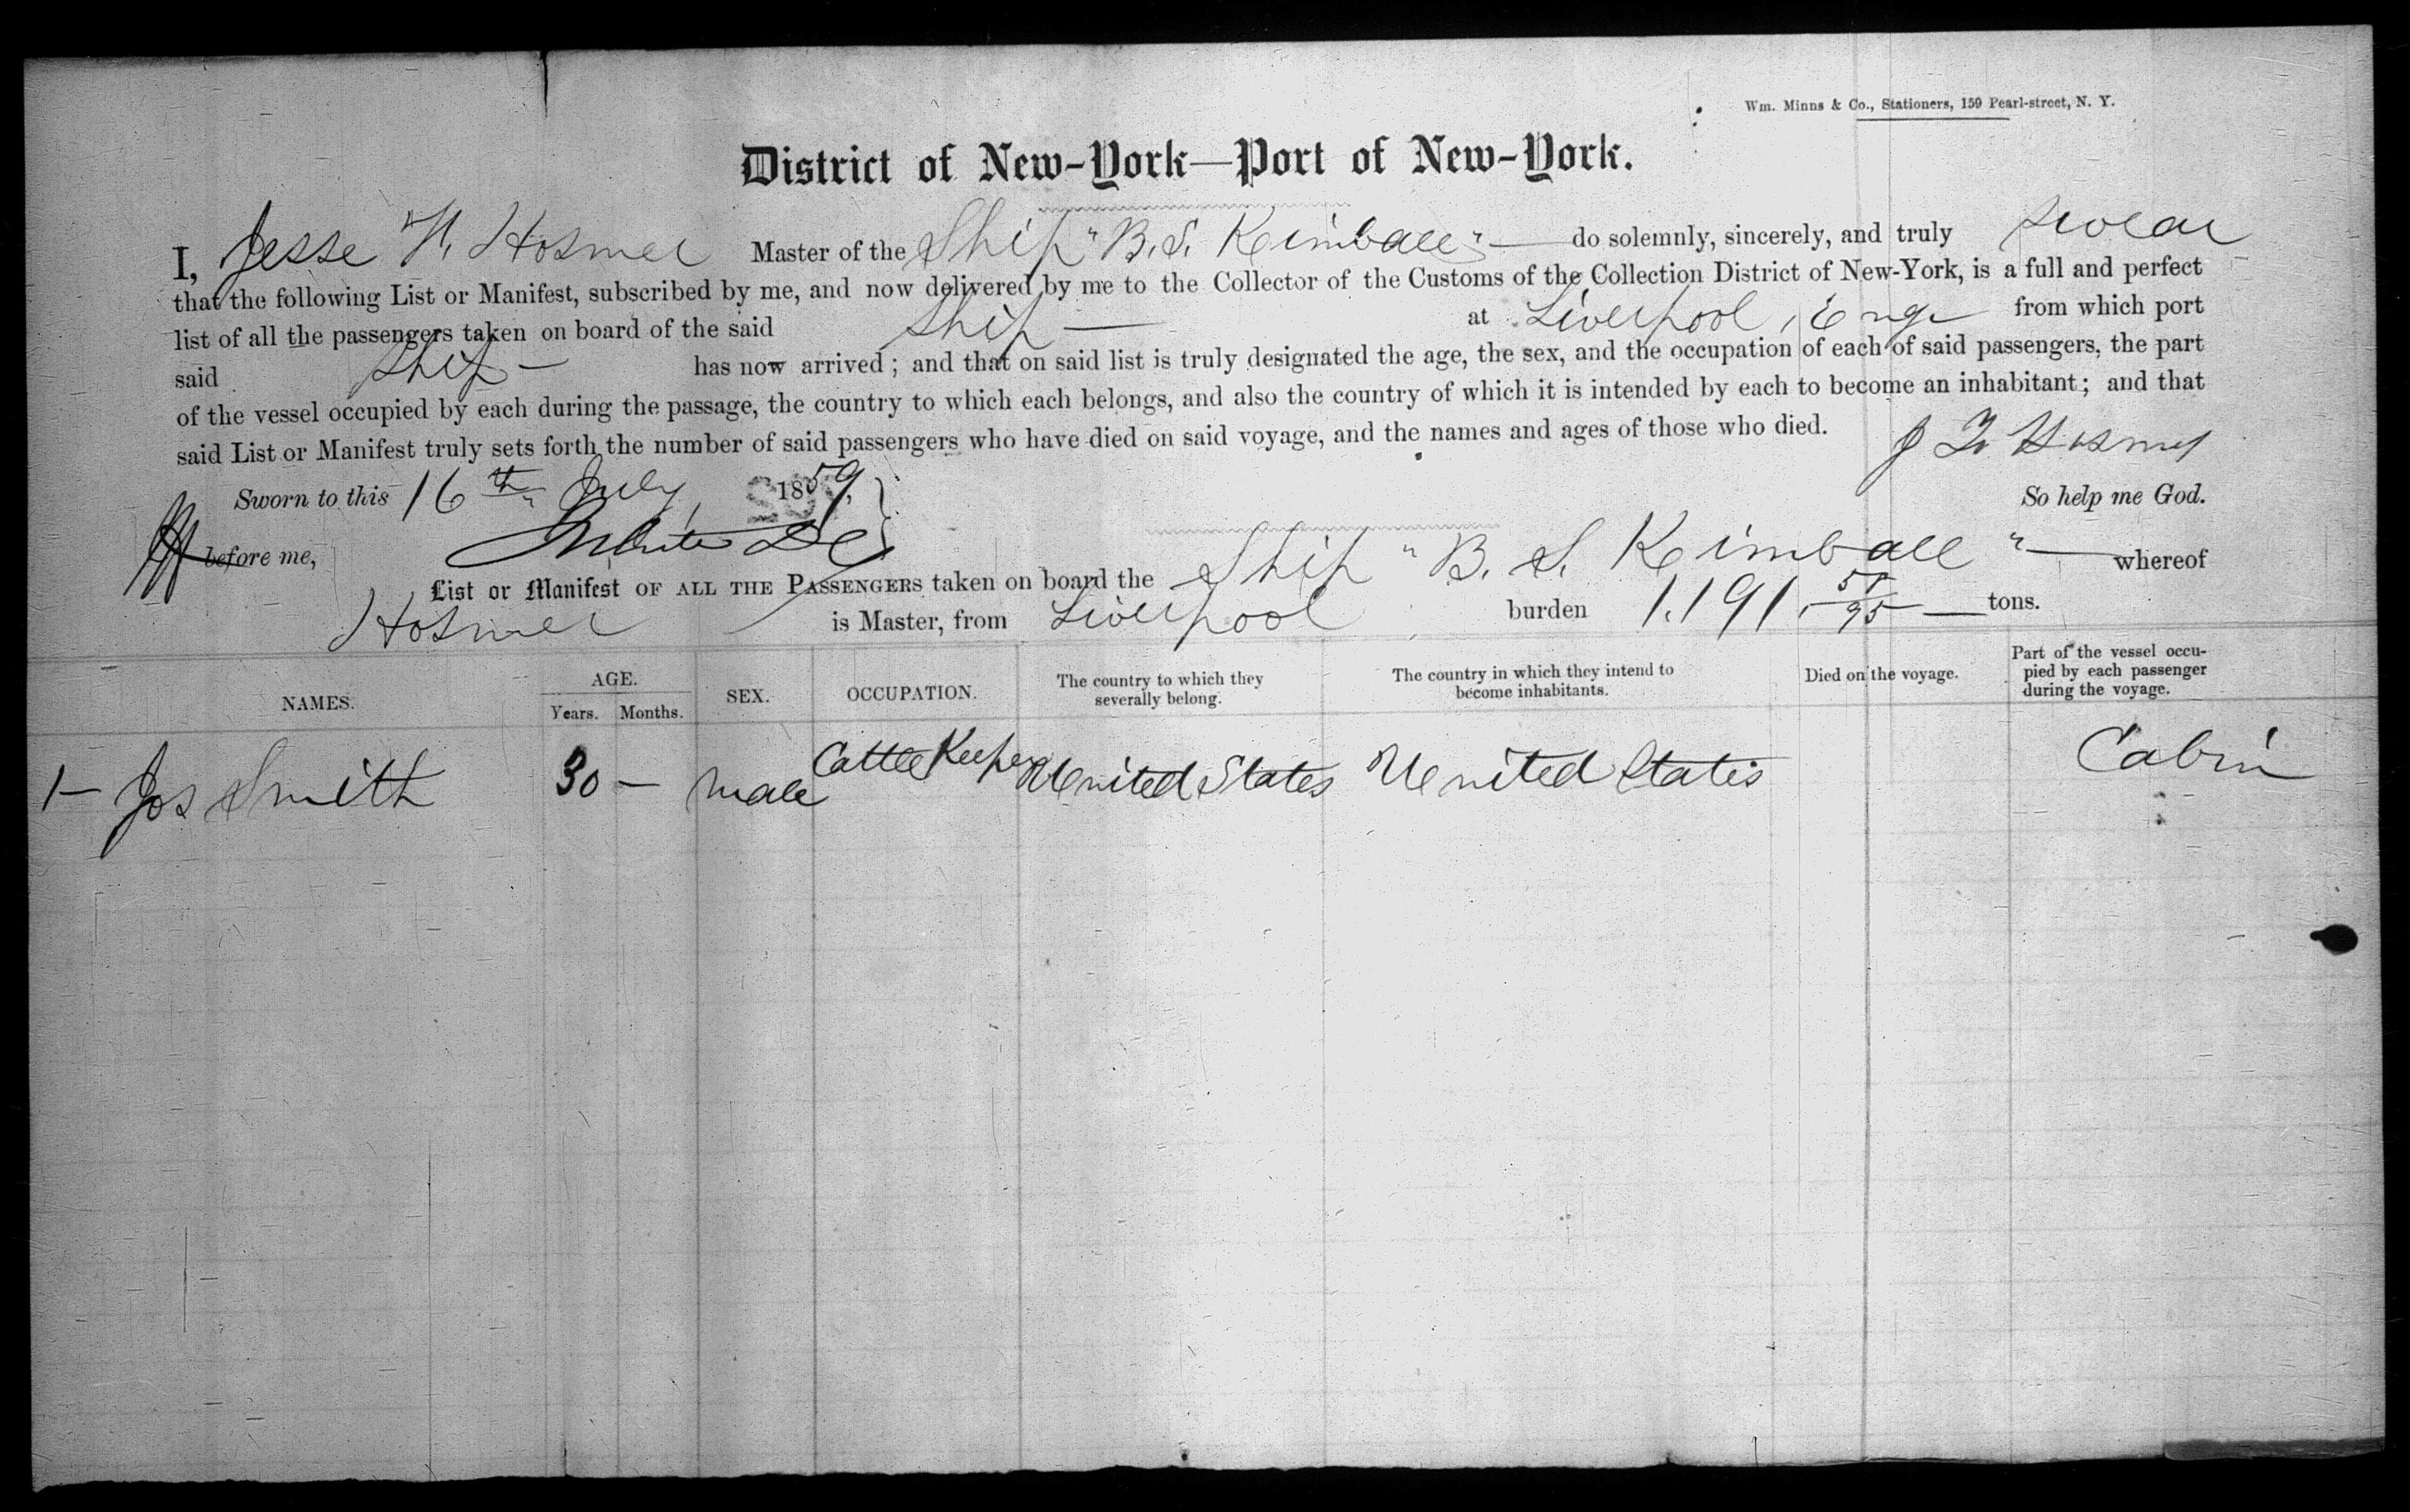 Wm. Minns & Co., Stationers, 159 Pearl-street, N. Y.
District of New-York—Port of New-York.
I, Jesse Hosmer Master of the Ship "B. S. Kimball" — do solemnly, sincerely, and truly swear
that the following List or Manifest, subscribed by me, and now delivered by me to the Collector of the Customs of the Collection District of New-York, is a full and perfect
list of all the passengers taken on board of the said Ship — at Liverpool, Eng from which port
said Ship — has now arrived; and that on said list is truly designated the age, the sex, and the occupation of each of said passengers, the part
of the vessel occupied by each during the passage, the country to which each belongs, and also the country of which it is intended by each to become an inhabitant; and that
said List or Manifest truly sets forth the number of said passengers who have died on said voyage, and the names and ages of those who died. J Hosmer
Sworn to this 16th July, 1859, So help me God.
before me,
List or Manifest OF ALL THE PASSENGERS taken on board the Ship "B. S. Kimball" — whereof
Hosmer is Master, from Liverpool burden 1,191 tons.
NAMES. AGE. Years. Months. SEX. OCCUPATION. The country to which they severally belong. The country in which they intend to become inhabitants. Died on the voyage. Part of the vessel occu-pied by each passenger during the voyage.
1 — Jos Smith 30 — Male Cattle Keeper United States United States Cabin